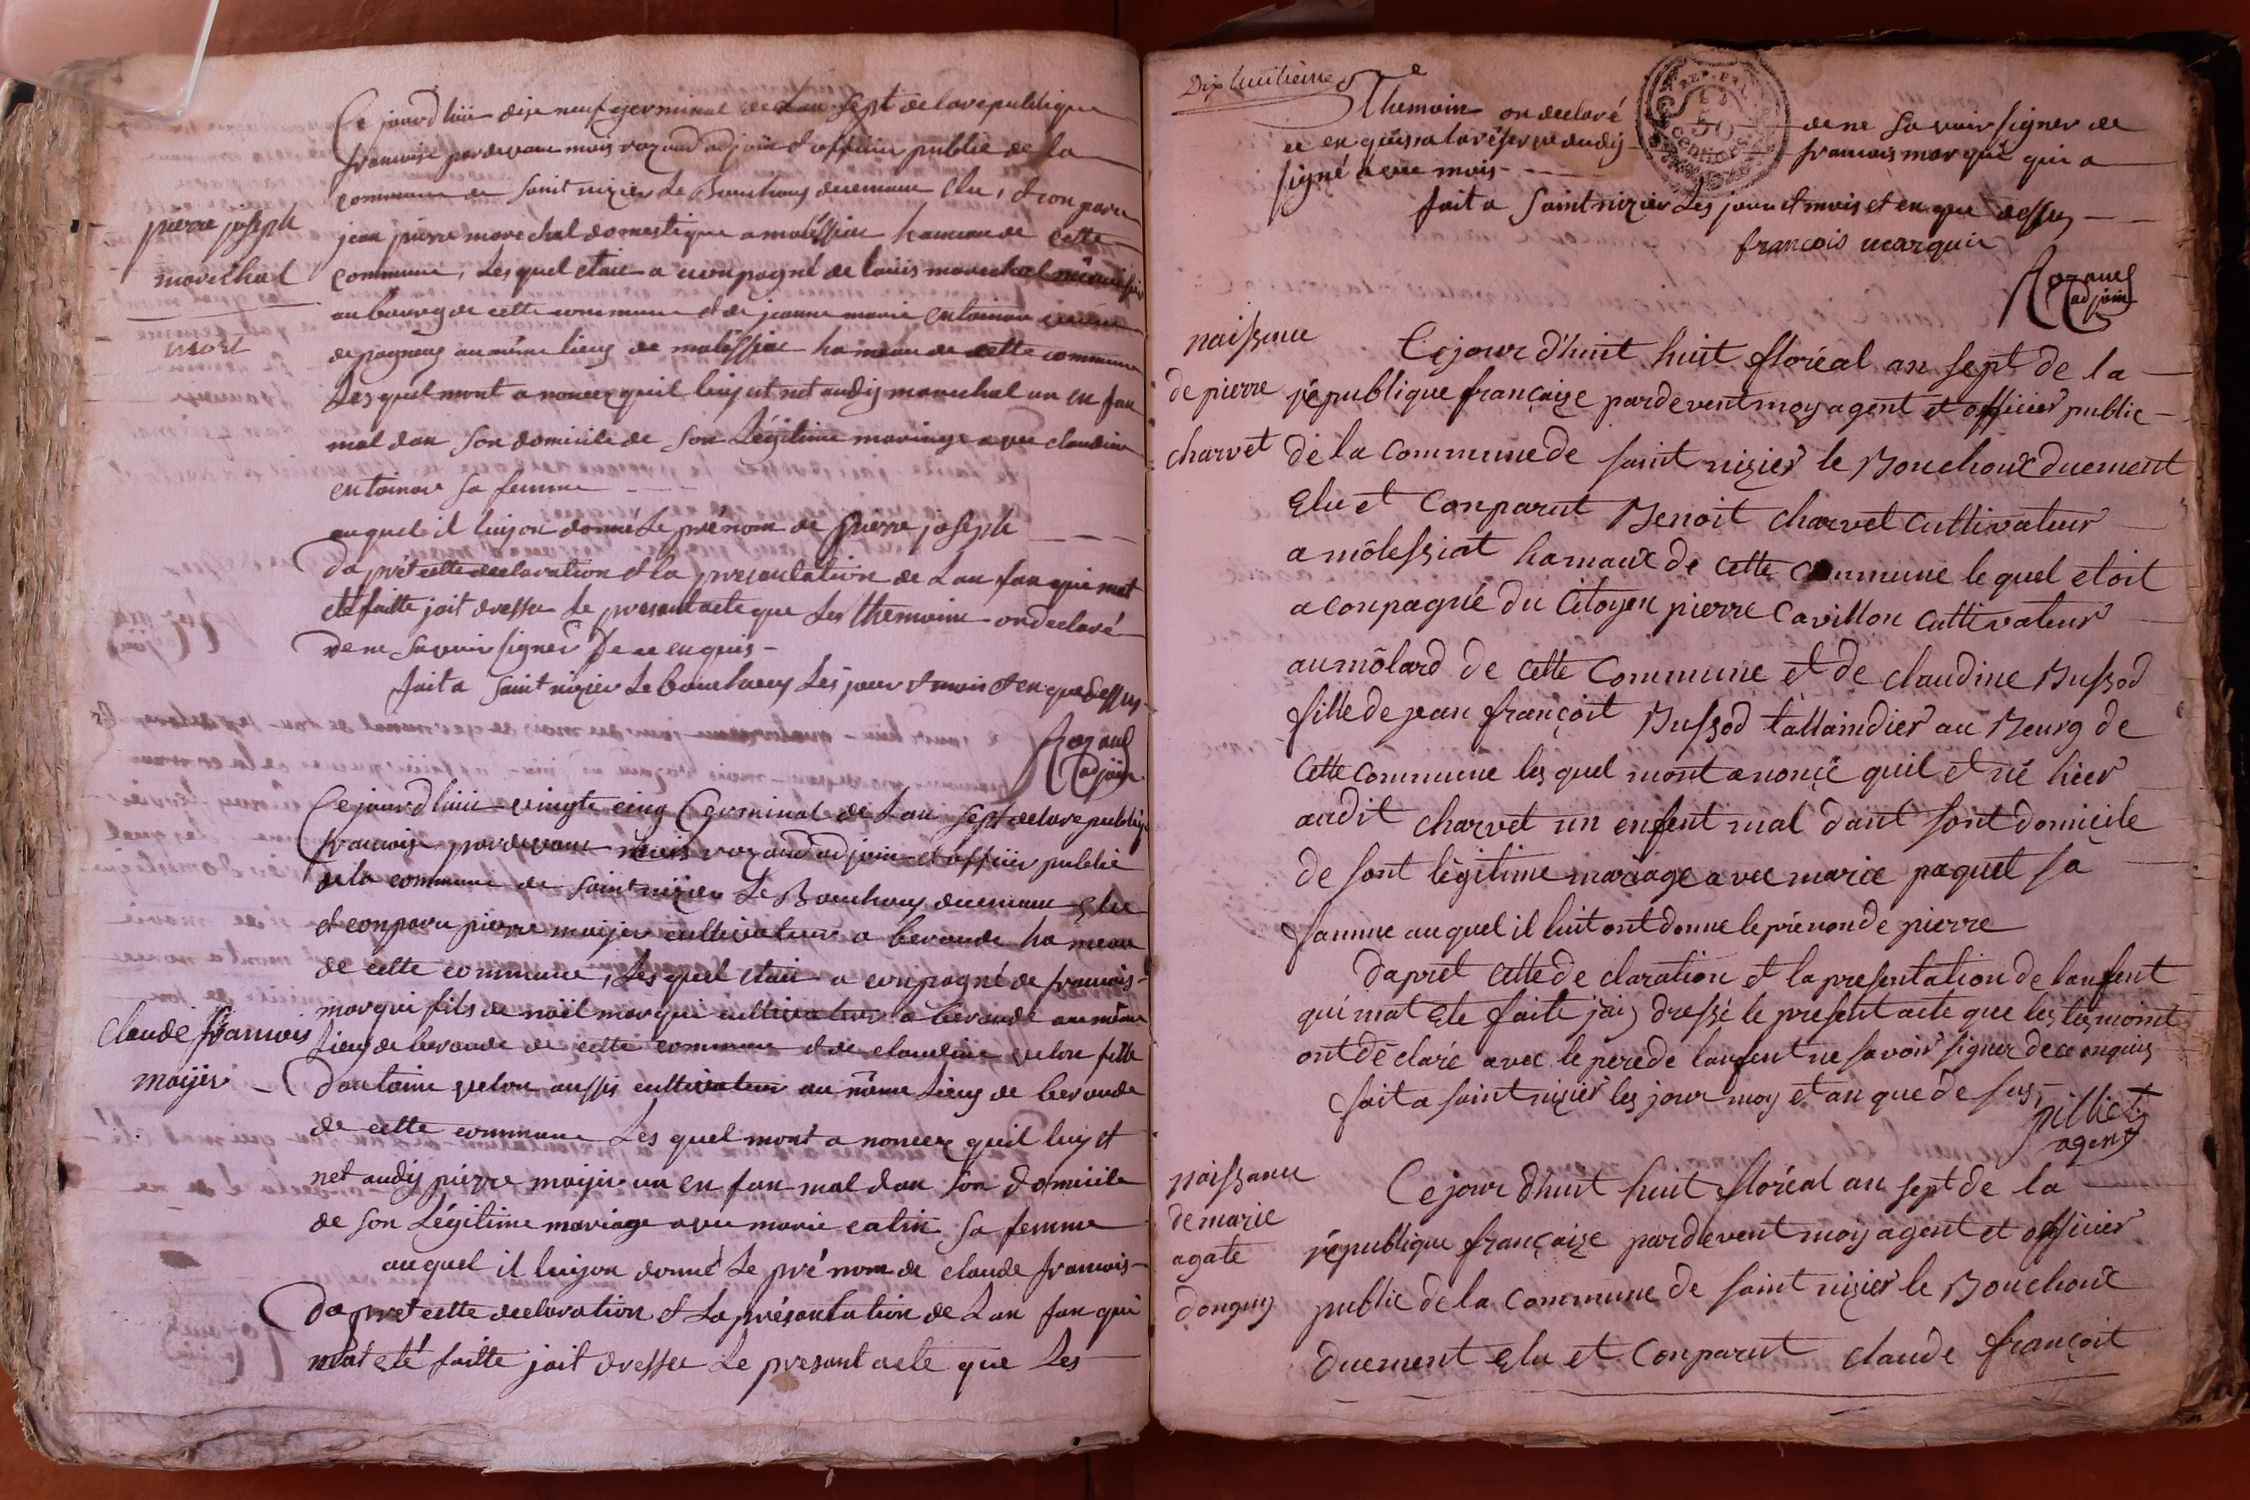 Ce jourd'huii dixe neuf germinal de Lan Sept de la republique
francoise pardevant mois rozand adjoin & officiir public de la
commune de Saint nizier Le Bouchoux duemant Elu, & conparu
pierre joseph
marechal
jean pierre marechal domestique a molessiat hameau de cette
commune, Les quel etait a cconpagné de louis marechal
mort
au bourg de cette commune & de jeanne marie
au même lieux de molessiat ha meau de cette commune
Les quel mont a noncer quil luy et net audy marechal un en fan
mal dan son domicile de son Légitime mariage avec claudine
sa femme
auquel il luy on donné Le prénom de pierre joseph
Da prèt cette declaration & la presentation de Lan fan qui mat
été faitte jait dresser le present acte que Les themoins on declaré
de ne savoir signer De ce enquis
fait a Saint nizier Le bouchoux Les jour & mois & en que dessus
Rozand
adjoin
Ce jourd'huii vingte cinq Germinal de Lan Sept de la republique
francoise pardevant mois rozand adjoin & officiir public
de la commune de Saint nizier Le Bouchoux duemant Elu
& conparu pierre moijer cultivateur a beronde ha meau
de cette commune, Les quel etait a conpagné de francois
claude francois
moijer
marqui fils de noël marqui cultivateur a beronde au même
Lieux de beronde de cette commune & de claudine velon fille
Dantoine velon aussi cultivateur au même Lieux de beronde
de cette commune Les quel mont a noncer quil luy et
net audy pierre moijer un en fan mal dan son domicile
de son Légitime mariage avec marie catin sa femme
auquel il luy on donné Le pré nom de claude francois
Da prèt cette declaration & La présentation de Lan fan qui
mat eté faitte jait dresser Le present acte que Les
Dix huitieme fle
Themoin on declaré de ne Savoir signer de
ce en quis a la réserve dudy francois marqui qui a
signé avec mois
fait a Saint nizier Les jour & mois et en que dessus
francois marquis
Rozand
adjoin
naissance
de pierre
charvet
Ce jour d'huit huit floréal an sept de la
république françaize pardevent moy agent et officier public
de la Commune de saint nizier le Bouchoux duement
Elu et Conparut Benoit charvet cultivateur
a môlessiat hamaux de cette Commune le quel etoit
a conpagné du Citoyen pierre Cavillon Cultivateur
au môlard de cette Commune et de claudine Bussod
fille de jean françoit Bussod tallaindier au Bourg de
Cette Commune les quel mont a noncé quil et né hier
audit charvet un enfent mal dant sont domicile
de sont légitime mariage avec marie paquet sa
famme au quel il luit ont donne le prénon de pierre
Dapret cette de claration et la presentation de lanfent
qui mat ete faite jai dressé le present acte que les tesmoint
ont déclaré avec le pere de lanfent ne savoir signer de ce enquis
fait a saint nizier les jour moy et an que de sus
pilliet
agent
naissance
de marie
agate
donguy
Ce jour d'huit huit floréal an sept de la
république françaize pardevent moy agent et officier
public de la Commune de saint nizier le Bouchoux
duement Elu et Conparut claude françoit